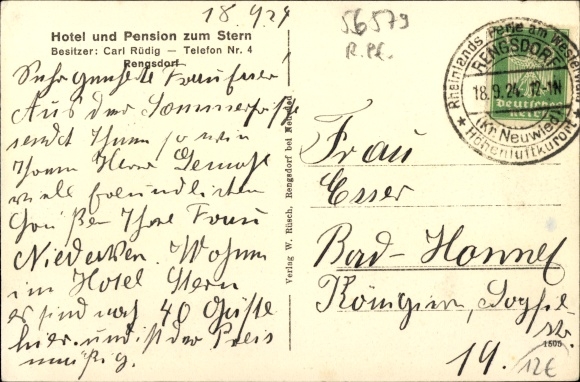 18.9.24
56579
R.Pf.
Hotel und Pension zum Stern
Besitzer: Carl Rüdig — Telefon Nr. 4
Rengsdorf
Rheinlands Perle am Westerwald
RENGSDORF
18.9.24. 12-1N
(Kr. Neuwied)
★ Höhenluftkurort ★
Deutsches Reich
Sehr geehrte Frau Esser!
Aus der Sommerfrische
sendt Ihnen sowie
Ihrem Herr Gemahl
viele freundlichen
Grüßen Ihre Frau
Niedecken. Wohnen
im Hotel Stern
es sind noch 40 Gäste
hier und ist der Preis
mäßig.
Verlag W. Rüsch, Rengsdorf bei Neuwied
Frau
Esser
Bad-Honnef
Königin, Sophie-
str.
19.
1505
12€